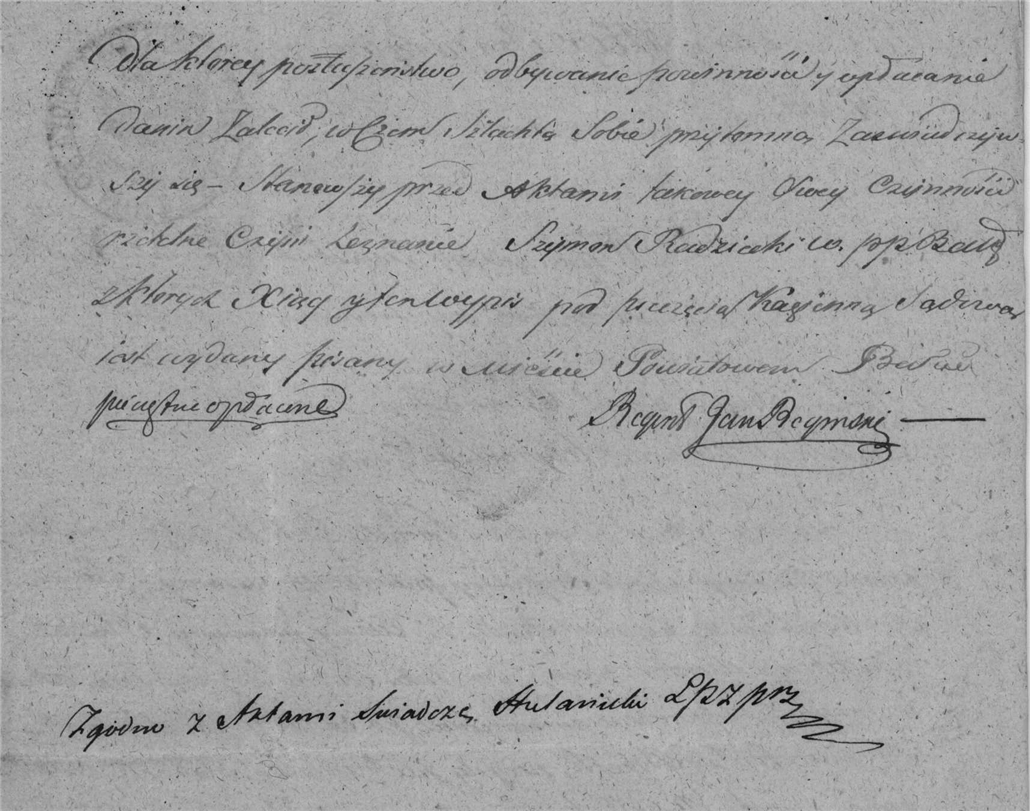 Dla ktorey posłuszeństwo, odbywanie powinności y opłacanie
Danin Zalecił, w Czem Szlachtą Sobie przytomną Zaswiadczyw
szy się – Stanowszy przed Aktami takowey Swey Czynności
rzetelne Czyni Zeznanie Szymon Radziecki w. pp
z ktorych Xiąg y ten Wypis pod pieczęcią Sądową
iest wydany pisany w Mieście Powiatowem
pieczętne opłacone Regent Jan
Zgodno z Aktami Swiadczę Hulanicki